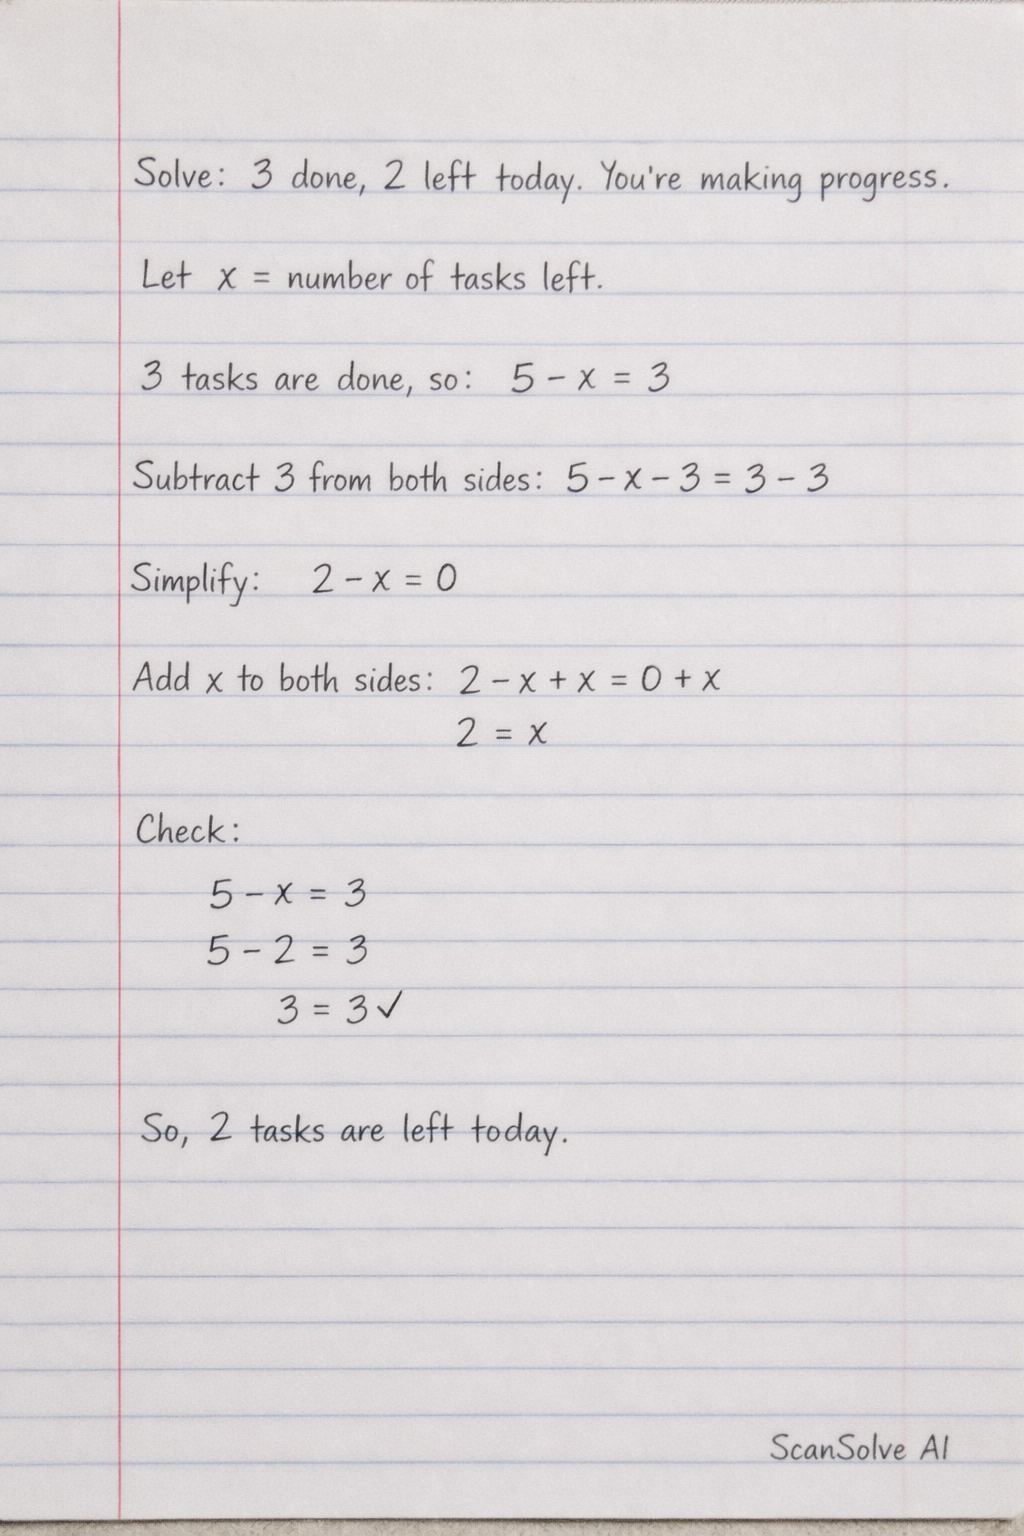 Solve: 3 done, 2 left today. You're making progress.
Let x = number of tasks left.
3 tasks are done, so: 5 - x = 3
Subtract 3 from both sides: 5 - x - 3 = 3 - 3
Simplify: 2 - x = 0
Add x to both sides: 2 - x + x = 0 + x
2 = x
Check:
5 - x = 3
5 - 2 = 3
3 = 3 ✓
So, 2 tasks are left today.
ScanSolve AI